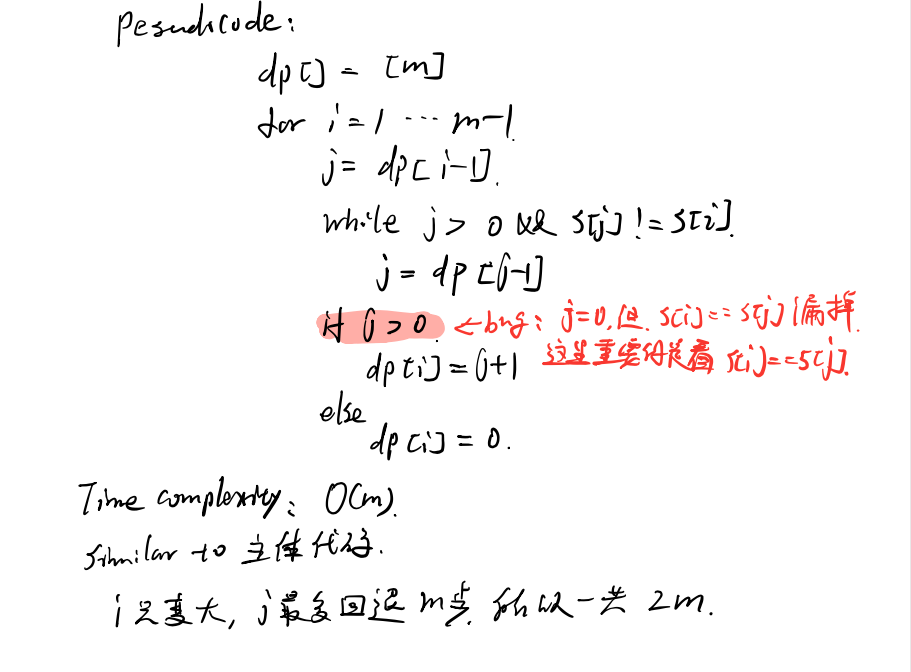 Pesudicode:
dp[] = [m]
for i = 1 ... m-1.
j = dp[i-1].
while j > 0 && s[j] != s[i].
j = dp[j-1]
if j > 0. ←bug: j=0,但 s[i] == s[j] 漏掉.
dp[i] = j+1 这里重要的是看 s[i] == s[j].
else
dp[i] = 0.
Time complexity: O(m).
similar to 主体代码.
i 只变大, j 最多回退 m 步. 所以一共 2m.